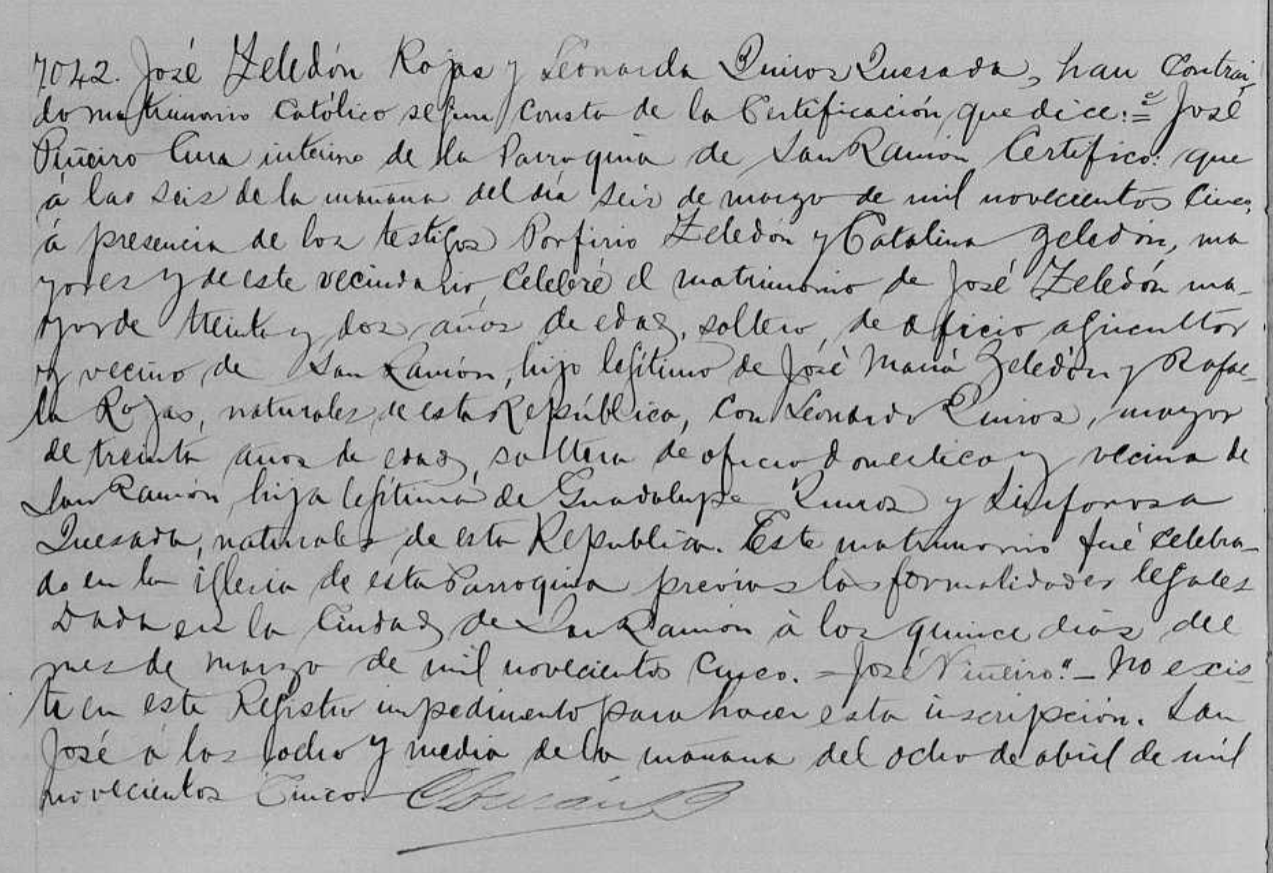 7042. José Zeledón Rojas y Leonarda Quiros Quesada, han contrai-
do matrimonio Católico según consta de la Certificación que dice:=" José
Piñeiro Cura interino de la Parroquia de San Ramón Certifico: que
á las seis de la mañana del día seis de marzo de mil novecientos cinco,
á presencia de los testigos Porfirio Zeledón y Catalina Zeledón, ma
yores y de este vecindario, celebré el matrimonio de José Zeledón ma-
yor de treinta y dos años de edad, soltero, de oficio agricultor
y vecino de San Ramón, hijo legítimo de José María Zeledón y Rafae-
la Rojas, naturales de esta República, con Leonarda Quiros, mayor
de treinta años de edad, soltera de oficio domestica y vecina de
San Ramón hija legítima de Guadalupe Quiros y Sinforosa
Quesada, naturales de esta Republica. Este matrimonio fué celebra-
do en la iglesia de esta Parroquia previas las formalidades legales
Dada en la Ciudad de San Ramón á los quince días del
mes de marzo de mil novecientos cinco. = José Piñeiro." - No exis-
te en este Registro impedimento para hacer esta inscripción. San
José á las ocho y media de la mañana del ocho de abril de mil
novecientos cinco